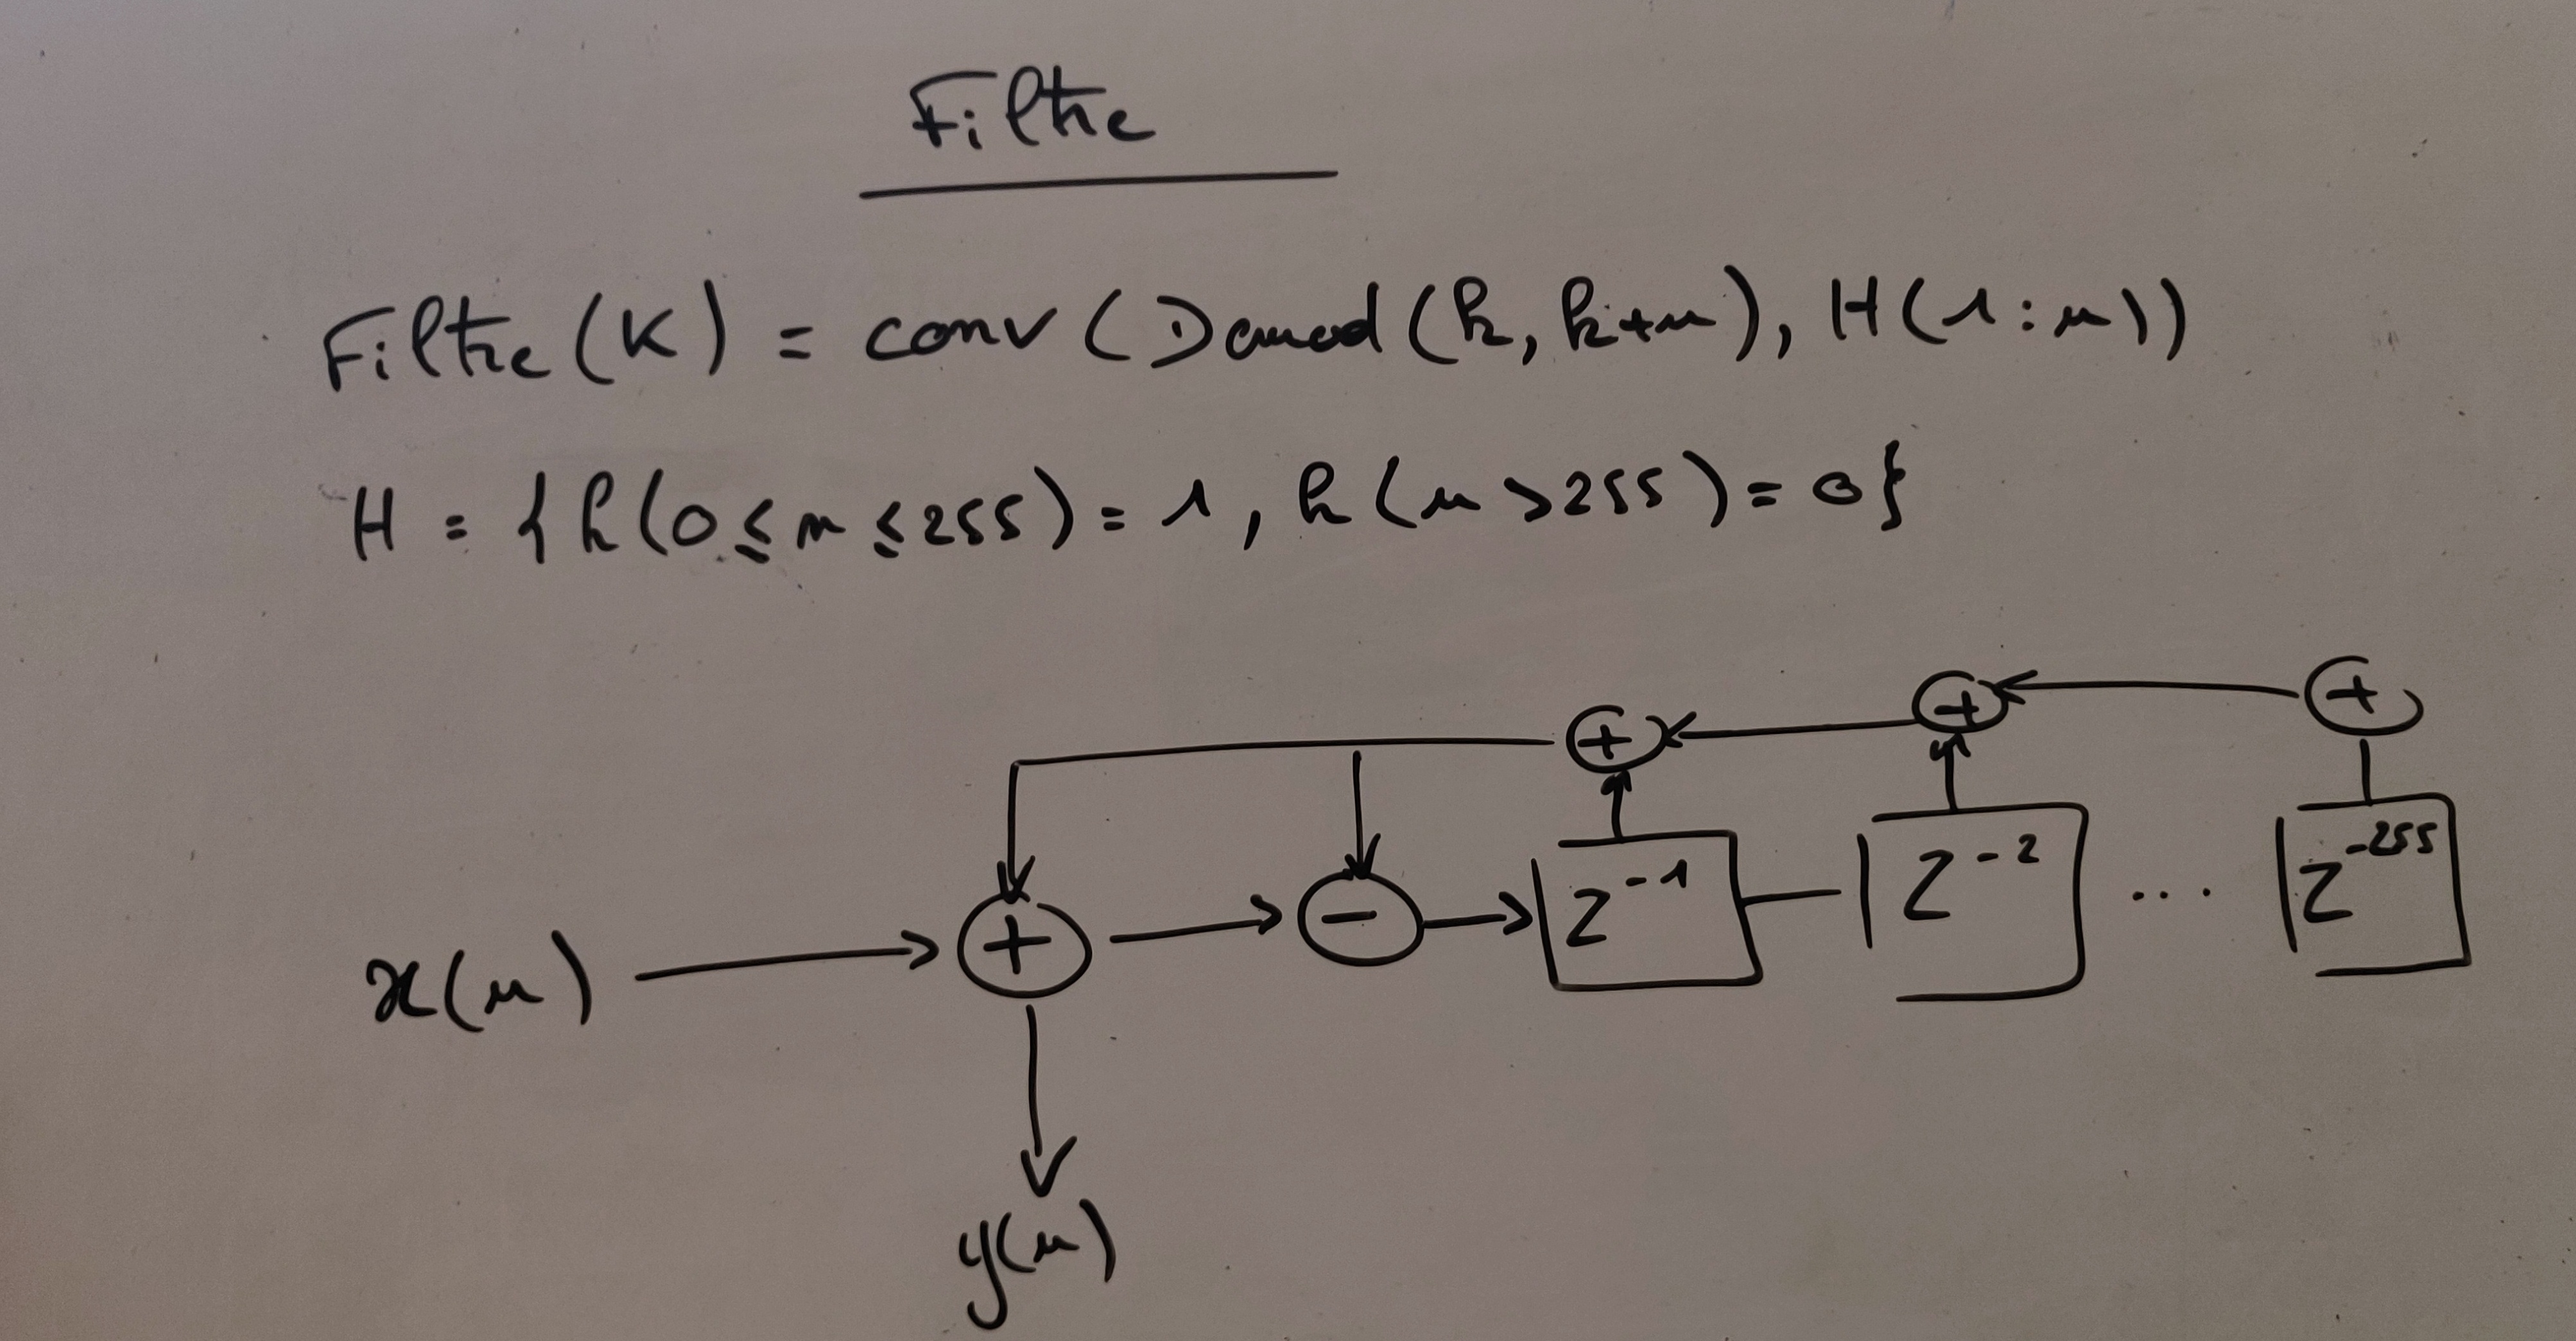 Filtre
Filtre(K) = conv(Demod(k, k+n), H(1:n))
H = {h(0≤n≤255)=1, h(n>255)=0}
+ + +
x(n) + - Z⁻¹ Z⁻² ... Z⁻²⁵⁵
y(n)